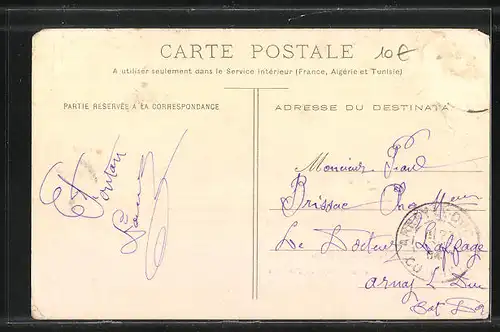 CARTE POSTALE
10€
A utiliser seulement dans le Service Intérieur (France, Algérie et Tunisie)
PARTIE RÉSERVÉE A LA CORRESPONDANCE
ADRESSE DU DESTINATA
Monsieur Paul
Brissac Chez Mr
Le Docteur Laffage
Arnay L Duc
Cot Dor